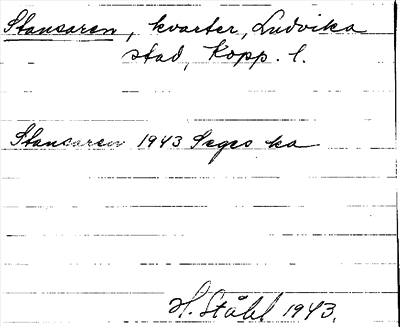 Stansaren, kvarter, Ludvika
stad, Kopp. l.
Stansaren 1943 Seges ka
H. Ståhl 1943.